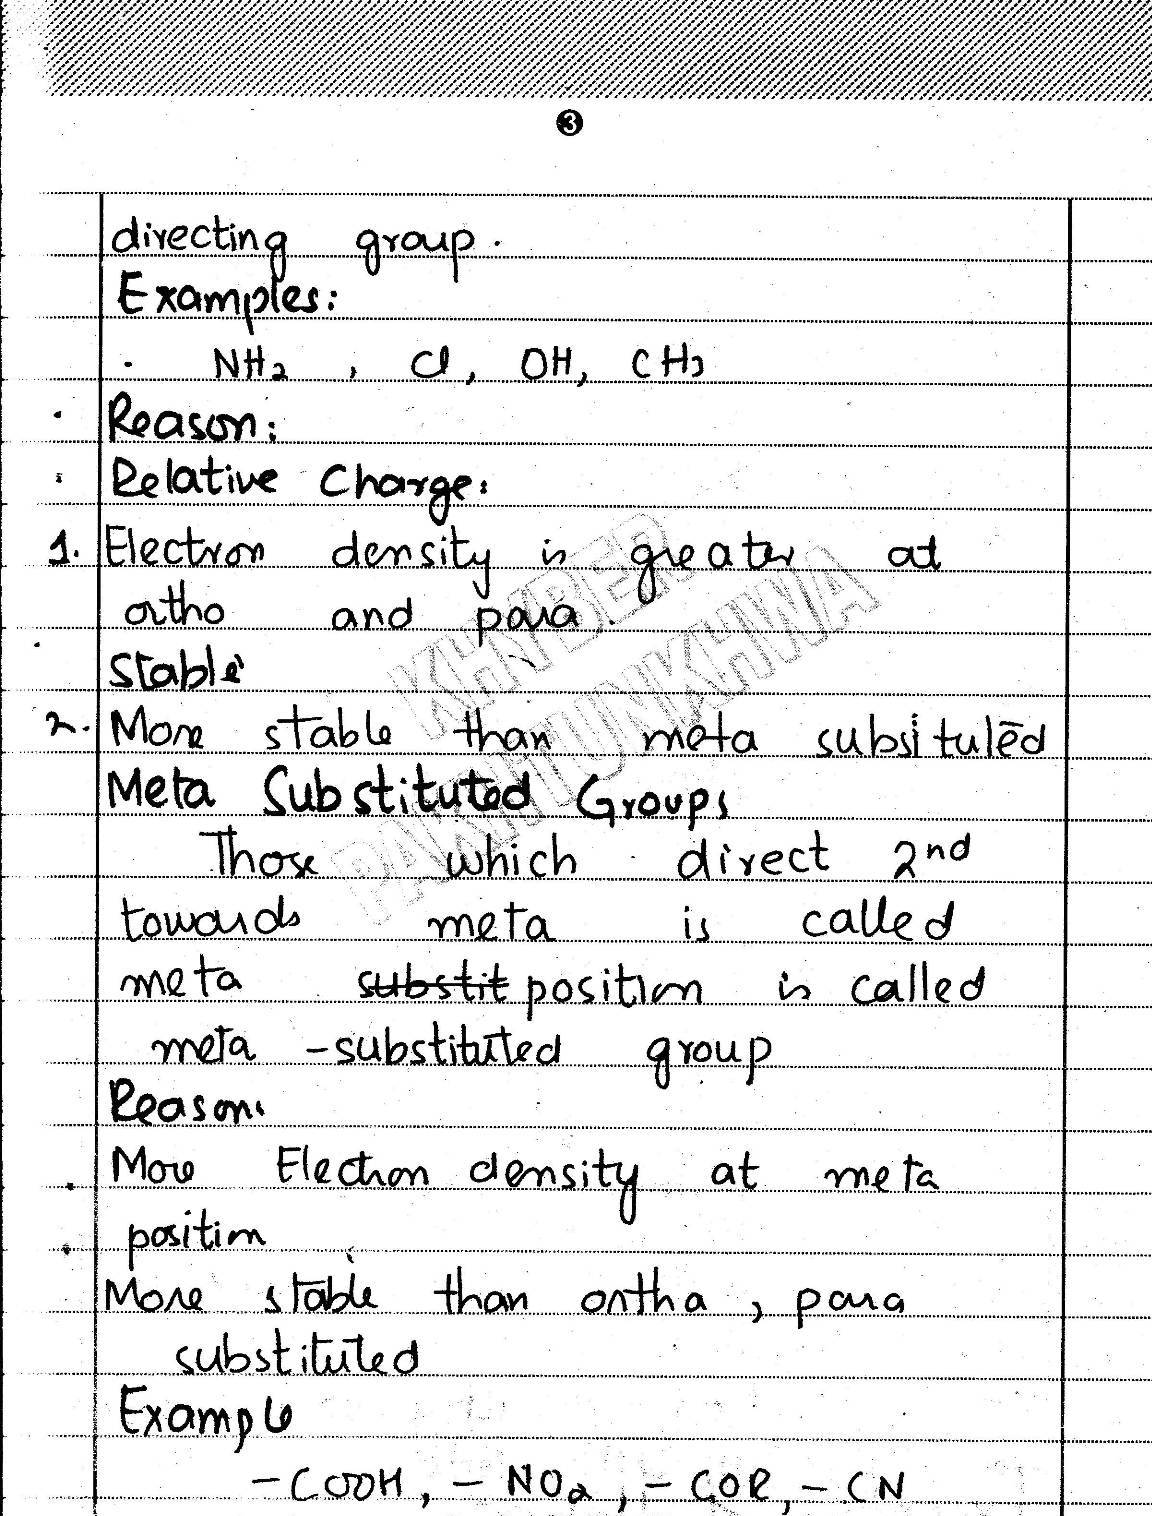 3
directing group.
Examples:
. NH2 , Cl, OH, CH3
Reason:
Relative Charge:
1. Electron density is greater at
ortho and para.
Stable
2. More stable than meta subsituted
Meta Substituted Groups
Those which direct 2nd
towards meta is called
meta substit position is called
meta -substituted group
Reason:
More Electron density at meta
position
More stable than ortha, para
substituted
Example
-COOH, -NO2, -COR, -CN
KHYBER
PAKHTUNKHWA